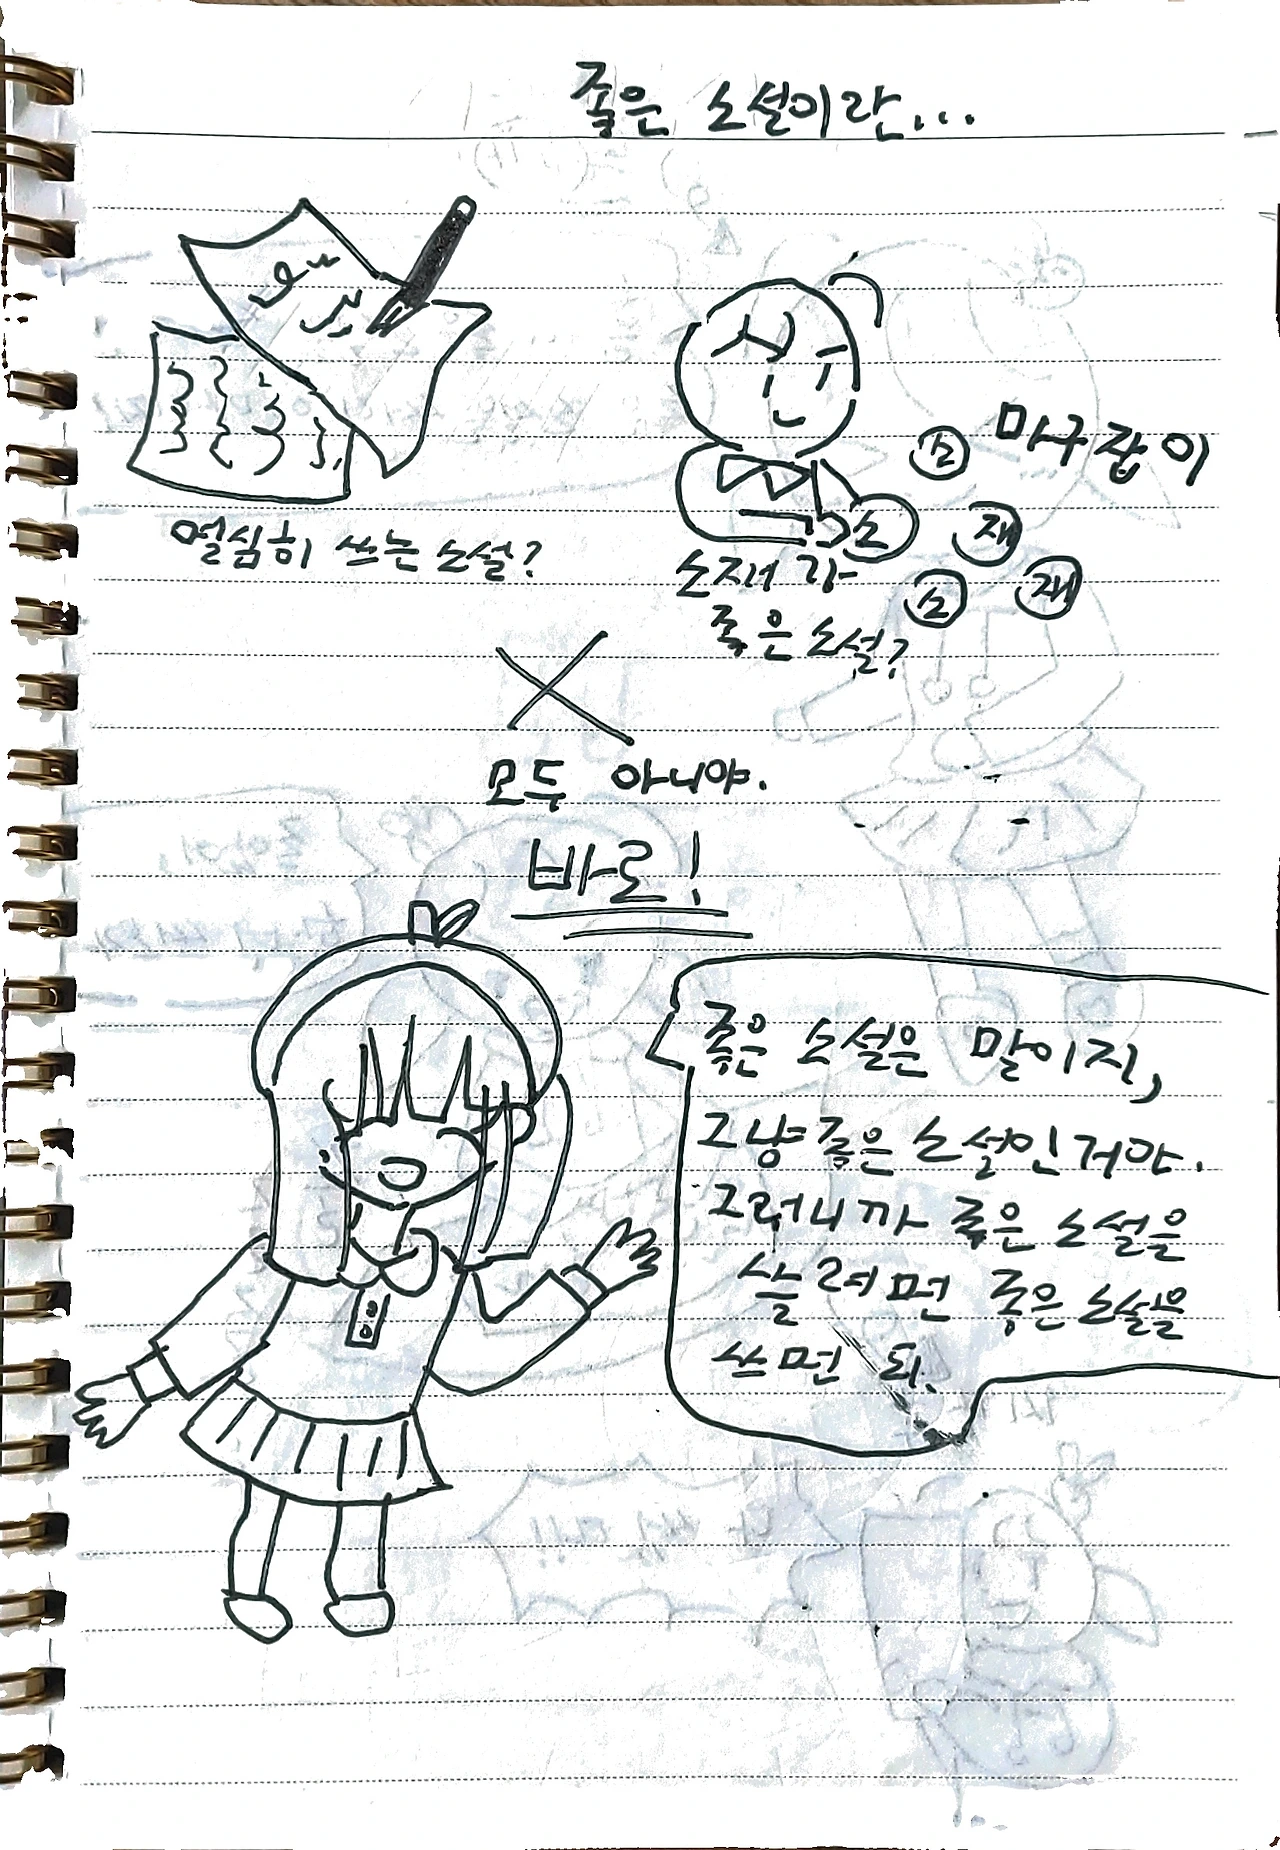 좋은 소설이란...
열심히 쓰는 소설?
마구잡이
소
소 재
소 재
소재가
좋은 소설?
모두 아니야.
바로!
좋은 소설은 말이지,
그냥 좋은 소설인거야.
그러니까 좋은 소설을
쓰면 되.